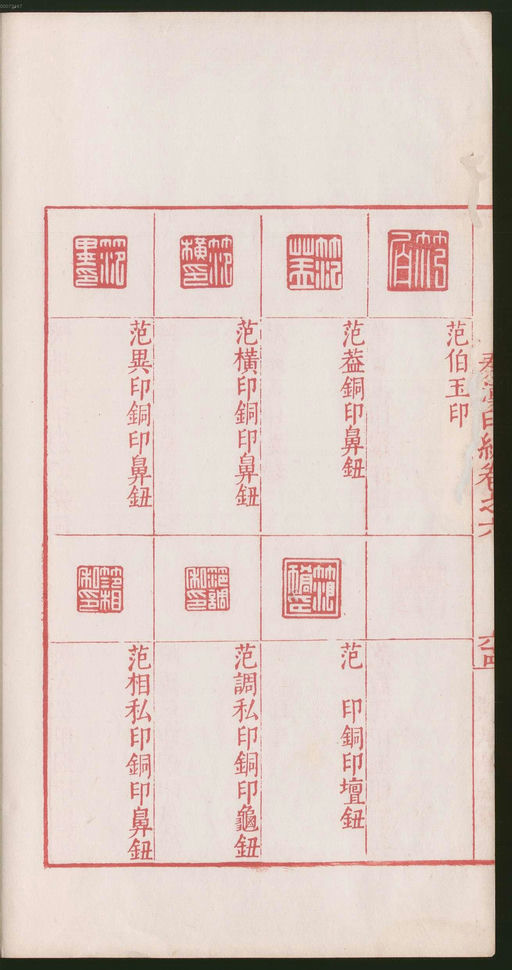 范伯玉印
范葢銅印鼻鈕
范橫印銅印鼻鈕
范異印銅印鼻鈕
范 印銅印壇鈕
范調私印銅印龜鈕
范相私印銅印鼻鈕
卷之六